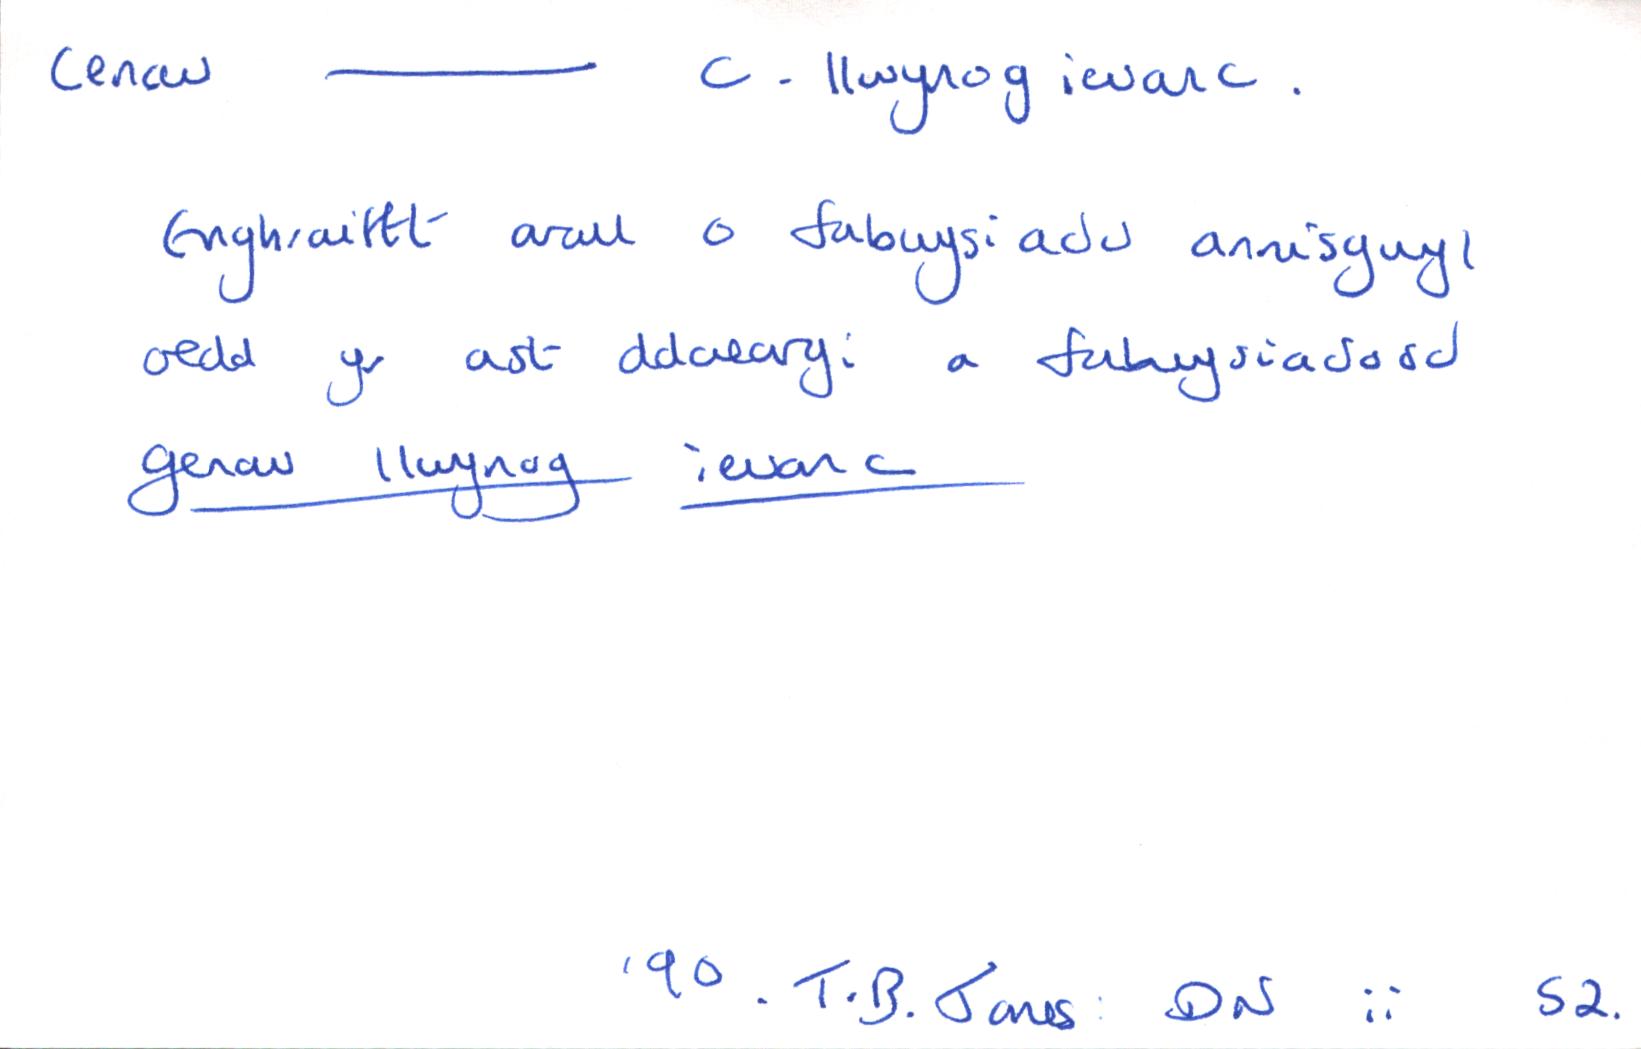 Cenaw ——— c. llwynog ievanc.
Enghraifft arall o fabwysiadu annisgwyl
oedd yr ast ddaeargi a fabwysiadodd
genaw llwynog ievanc
'90. T.B. Jones: DN ii 52.